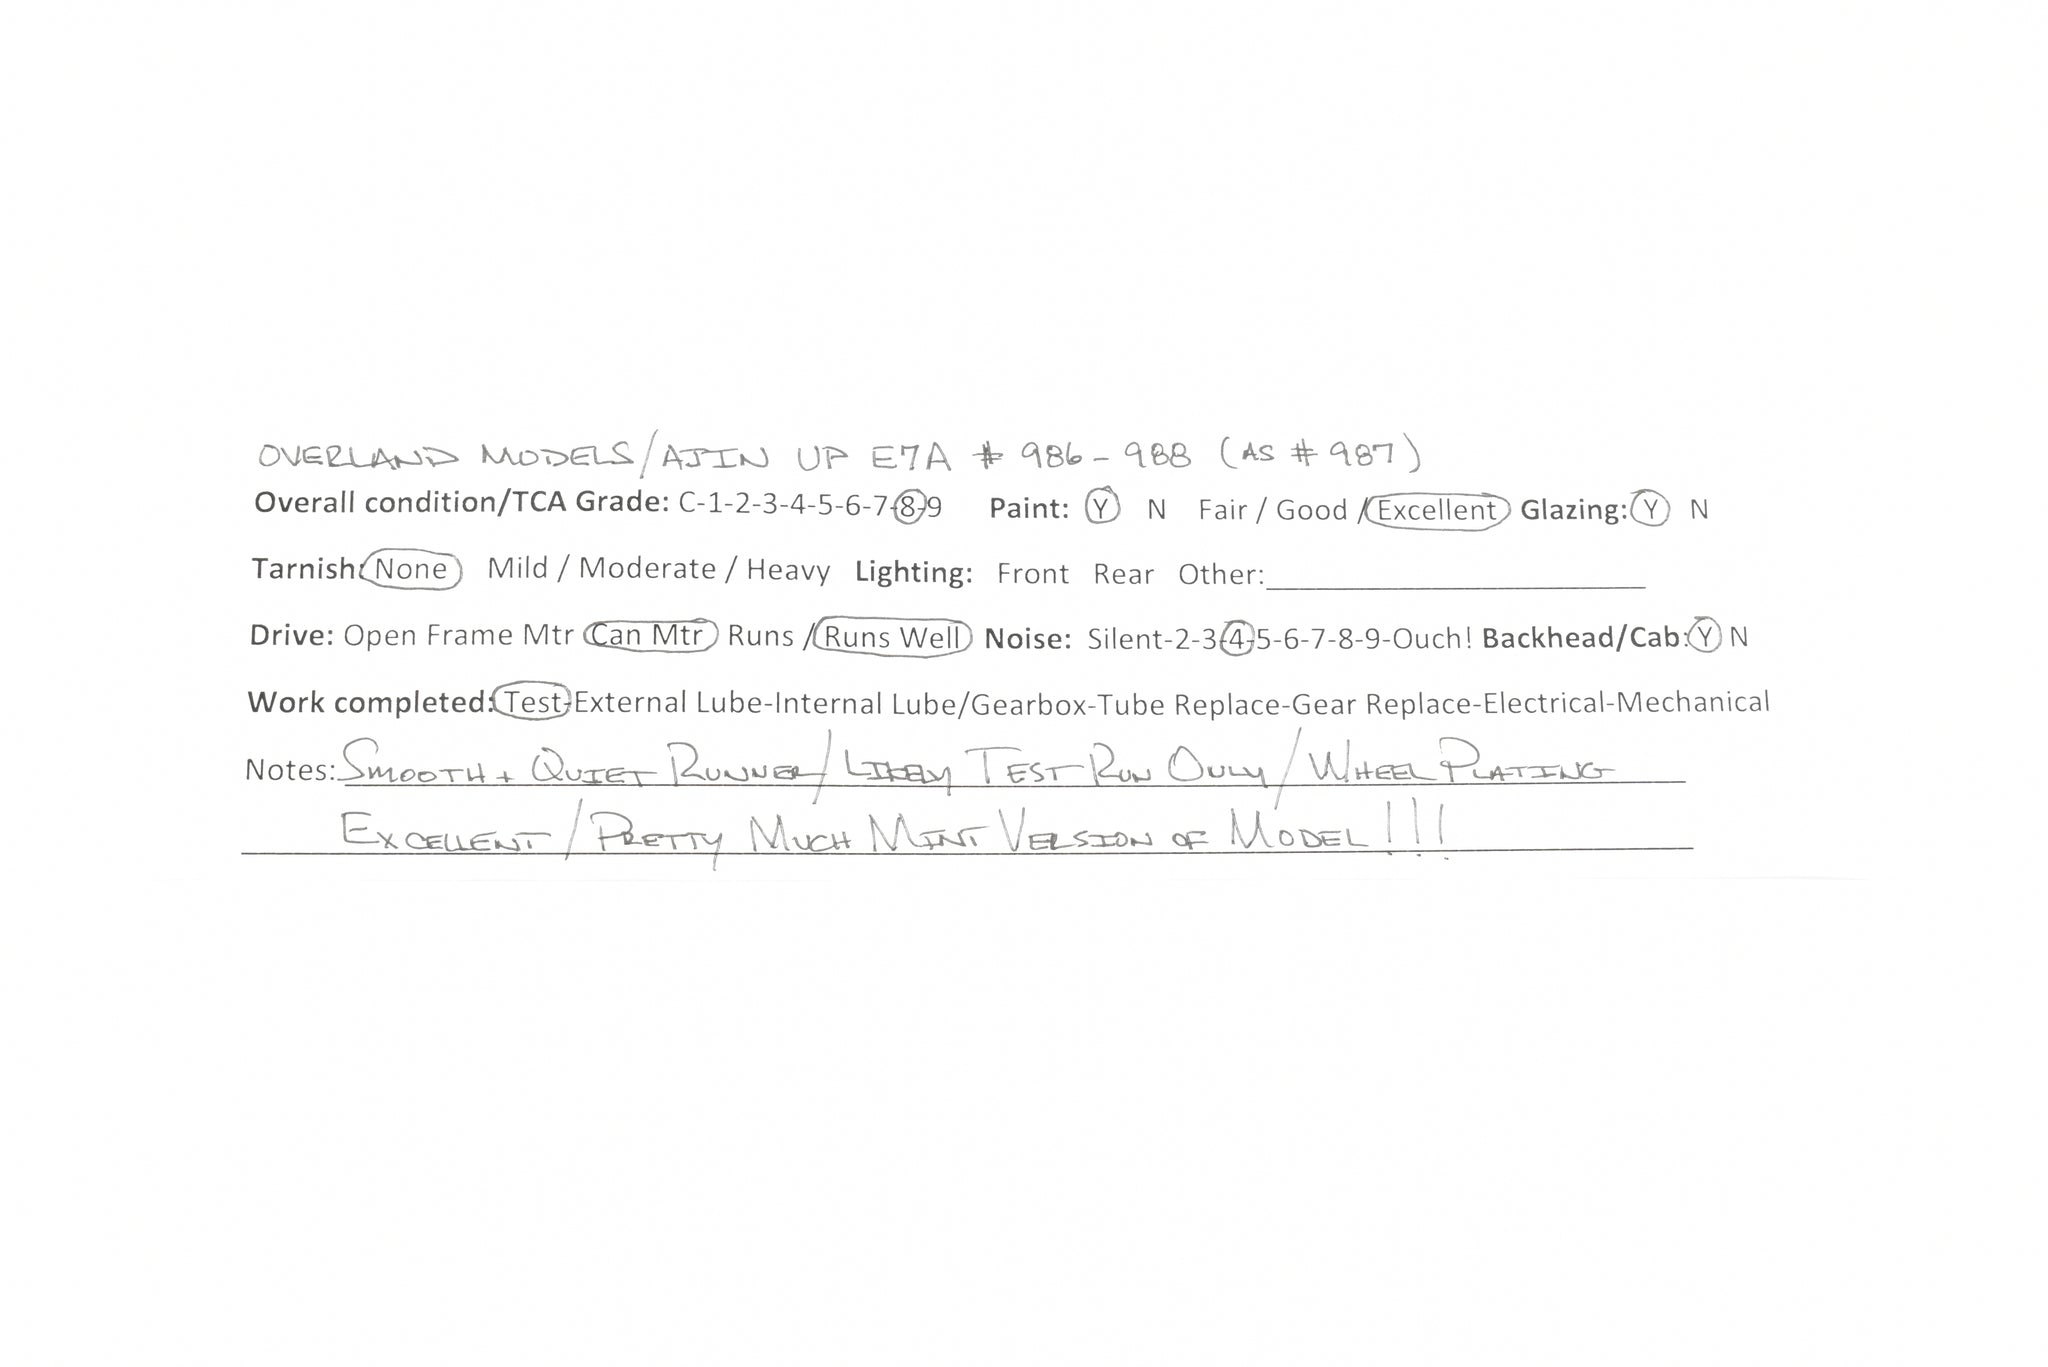 OVERLAND MODELS/AJIN UP E7A # 986-988 (AS # 987)
Overall condition/TCA Grade: C-1-2-3-4-5-6-7-8-9 Paint: Y N Fair / Good / Excellent Glazing: Y N
Tarnish: None Mild / Moderate / Heavy Lighting: Front Rear Other:
Drive: Open Frame Mtr Can Mtr Runs / Runs Well Noise: Silent-2-3-4-5-6-7-8-9-Ouch! Backhead/Cab: Y N
Work completed: Test-External Lube-Internal Lube/Gearbox-Tube Replace-Gear Replace-Electrical-Mechanical
Notes: SMOOTH + QUIET RUNNER/LIKELY TEST RUN ONLY/WHEEL PLATING
EXCELLENT/PRETTY MUCH MINT VERSION OF MODEL!!!